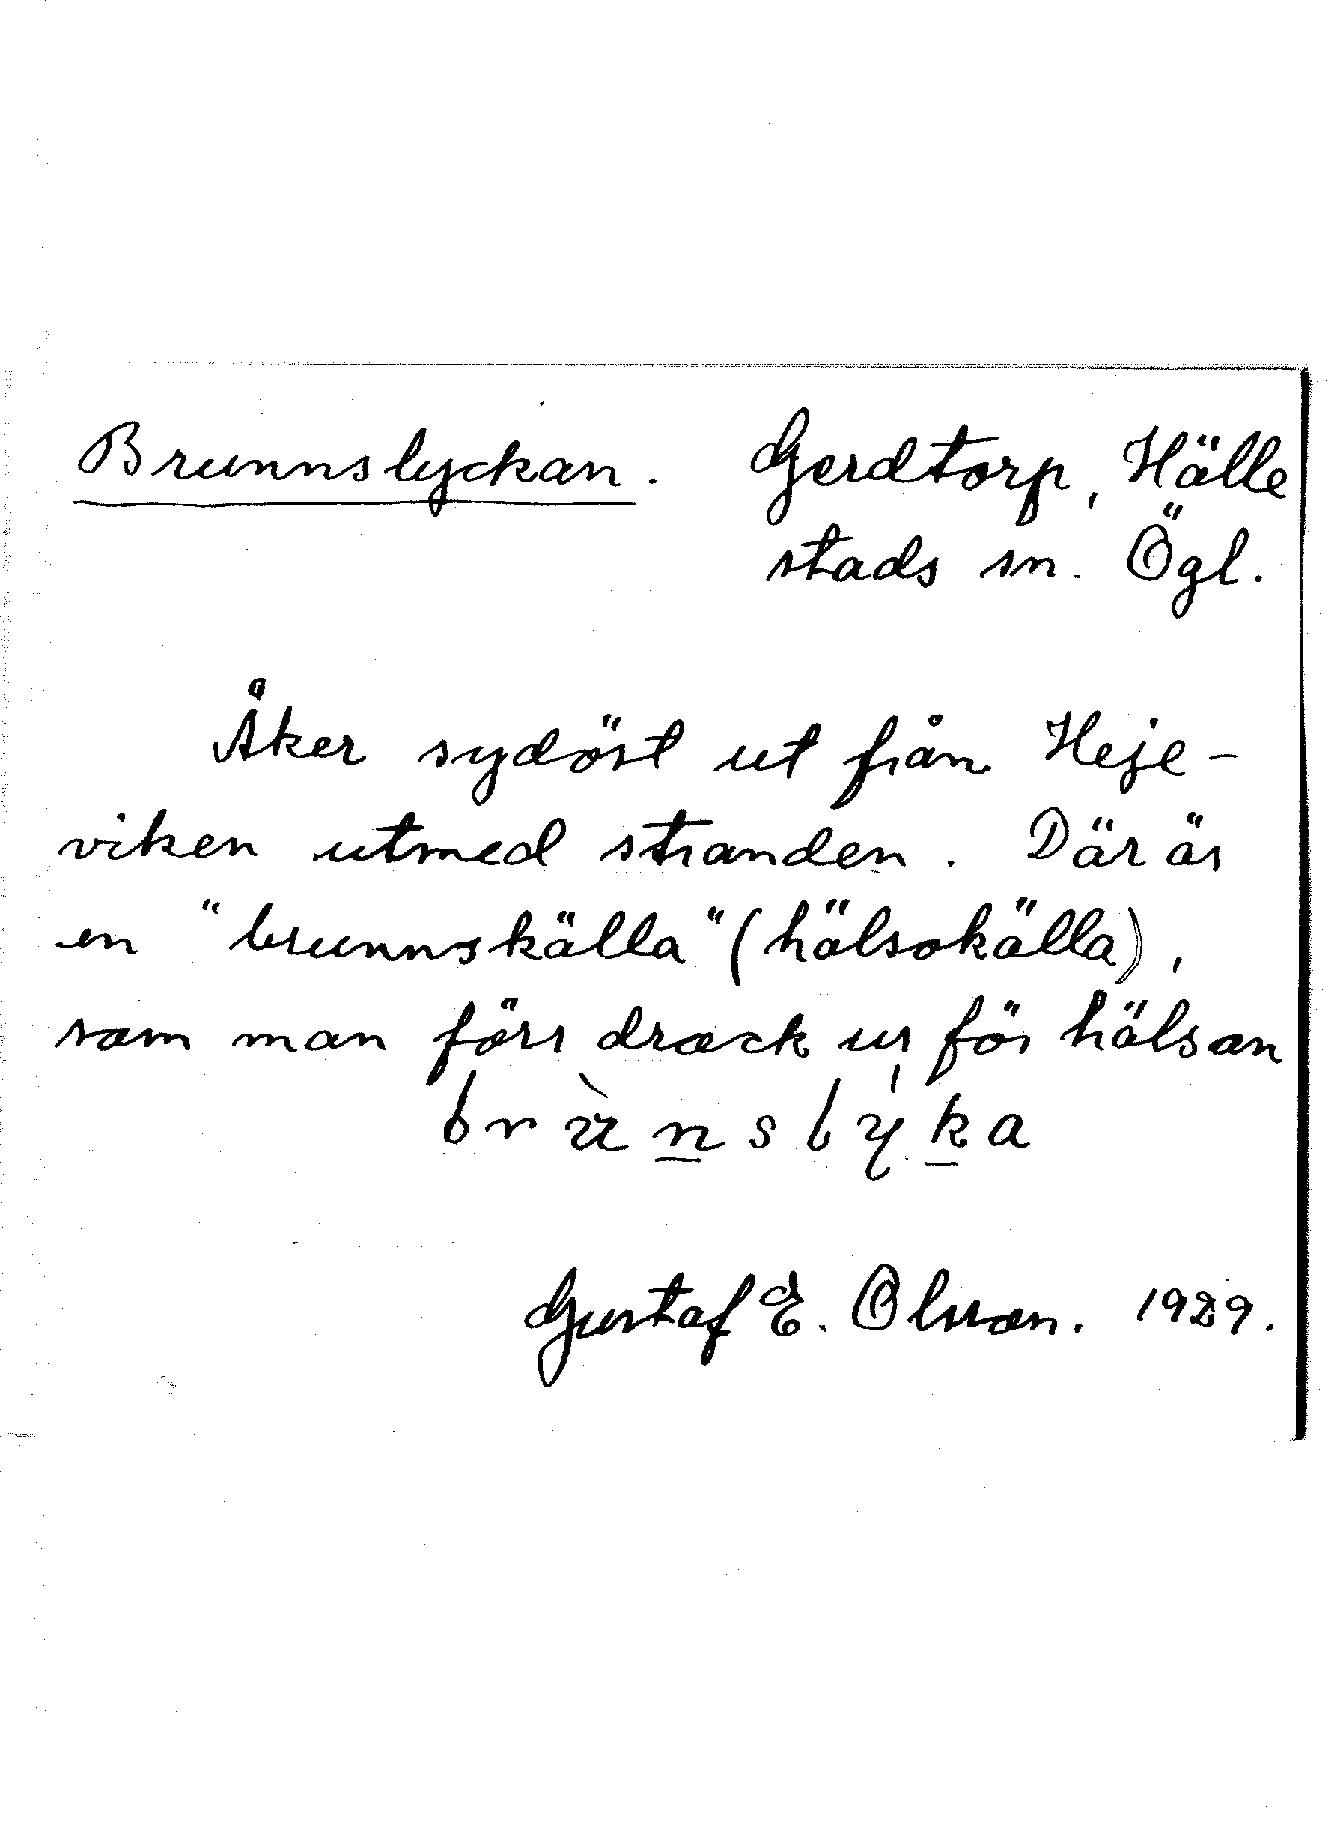 Brunnslyckan. Gerdtorp, Hälle
stads sn. Ögl.
Åker sydöst ut från Heje-
viken utmed stranden. Där är
en "brunnskälla" (hälsokälla),
som man förr drack ur för hälsan
brùnslýka
Gustaf E. Olsson. 1929.